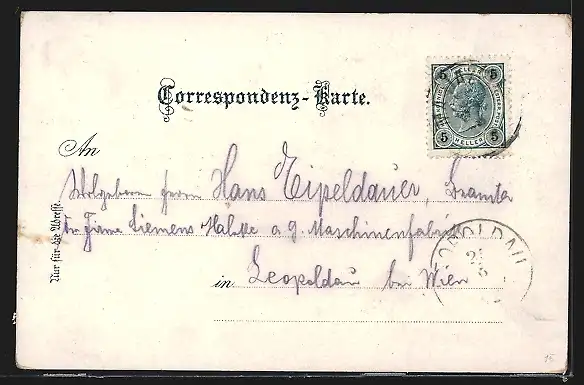 Correspondenz-Karte.
5 HELLER 5
5 HELLER 5
An
Wolgeboren Herrn Hans Eipeldauer, Beamter
der Firma Siemens Halske a. g. Maschinenfabrik
in Leopoldau bei Wien
Nur für die Adresse.
LEOPOLDAU